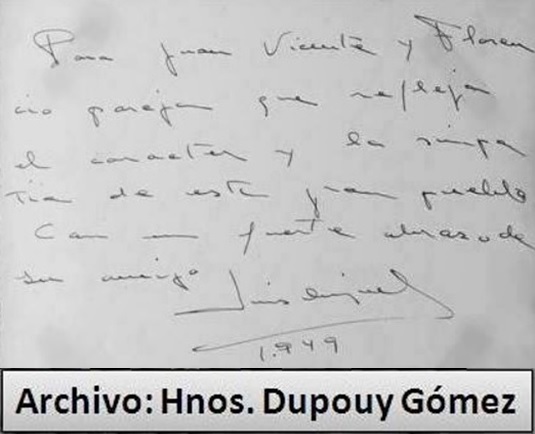 Para Juan Vicente y Floren
cio pareja que refleja
el caracter y la simpa
tia de este gran pueblo
Con un fuerte abrazo de
su amigo
Luis Miguel
1.949
Archivo: Hnos. Dupouy Gómez